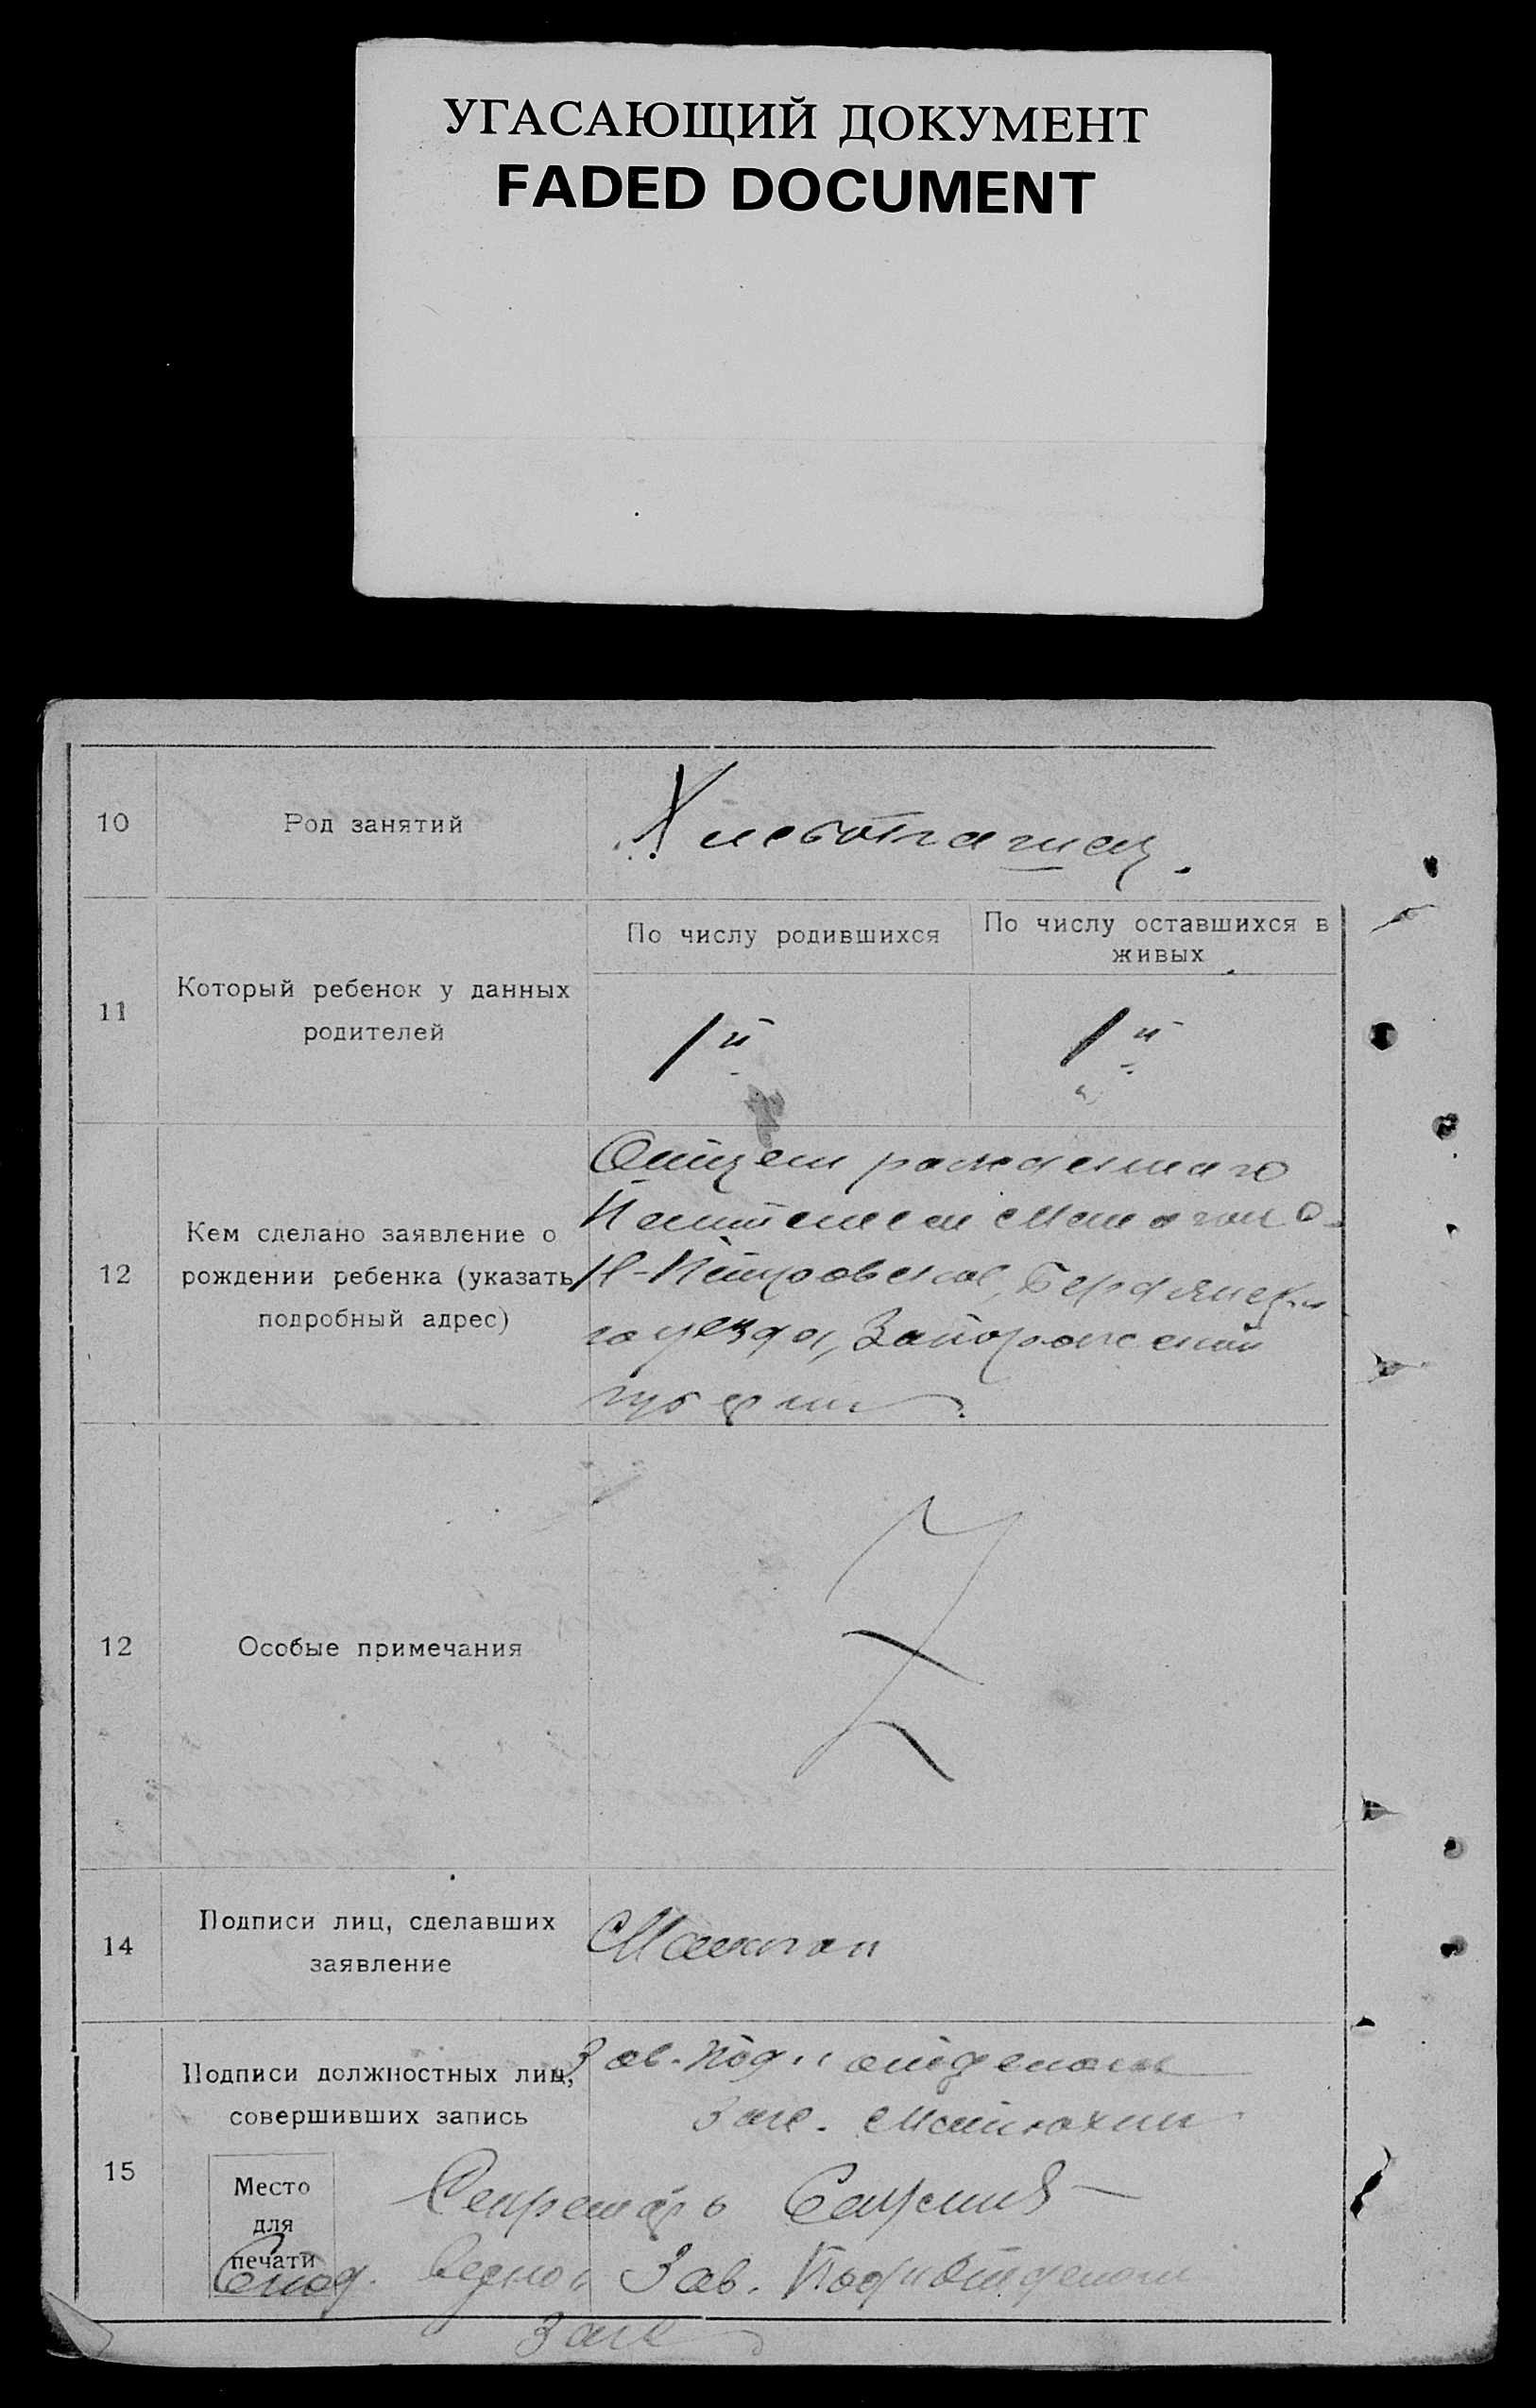 УГАСАЮЩИЙ ДОКУМЕНТ
FADED DOCUMENT
10
Род занятий
Хлебопашец.
11
Который ребенок у данных
родителей
По числу родившихся
По числу оставшихся в
живых
1й
1й
12
Кем сделано заявление о
рождении ребенка (указать
подробный адрес)
Отцем
Н-Петровской, Бердянска
го уезда, Запорожской
губернии.
12
Особые примечания
14
Подписи лиц, сделавших
заявление
15
Подписи должностных лиц,
совершивших запись
Место
для
печати
Зав. Подотделом
Загс. Матюхин
Секретарь
С подл. верно: Зав. Подотделом
Загс